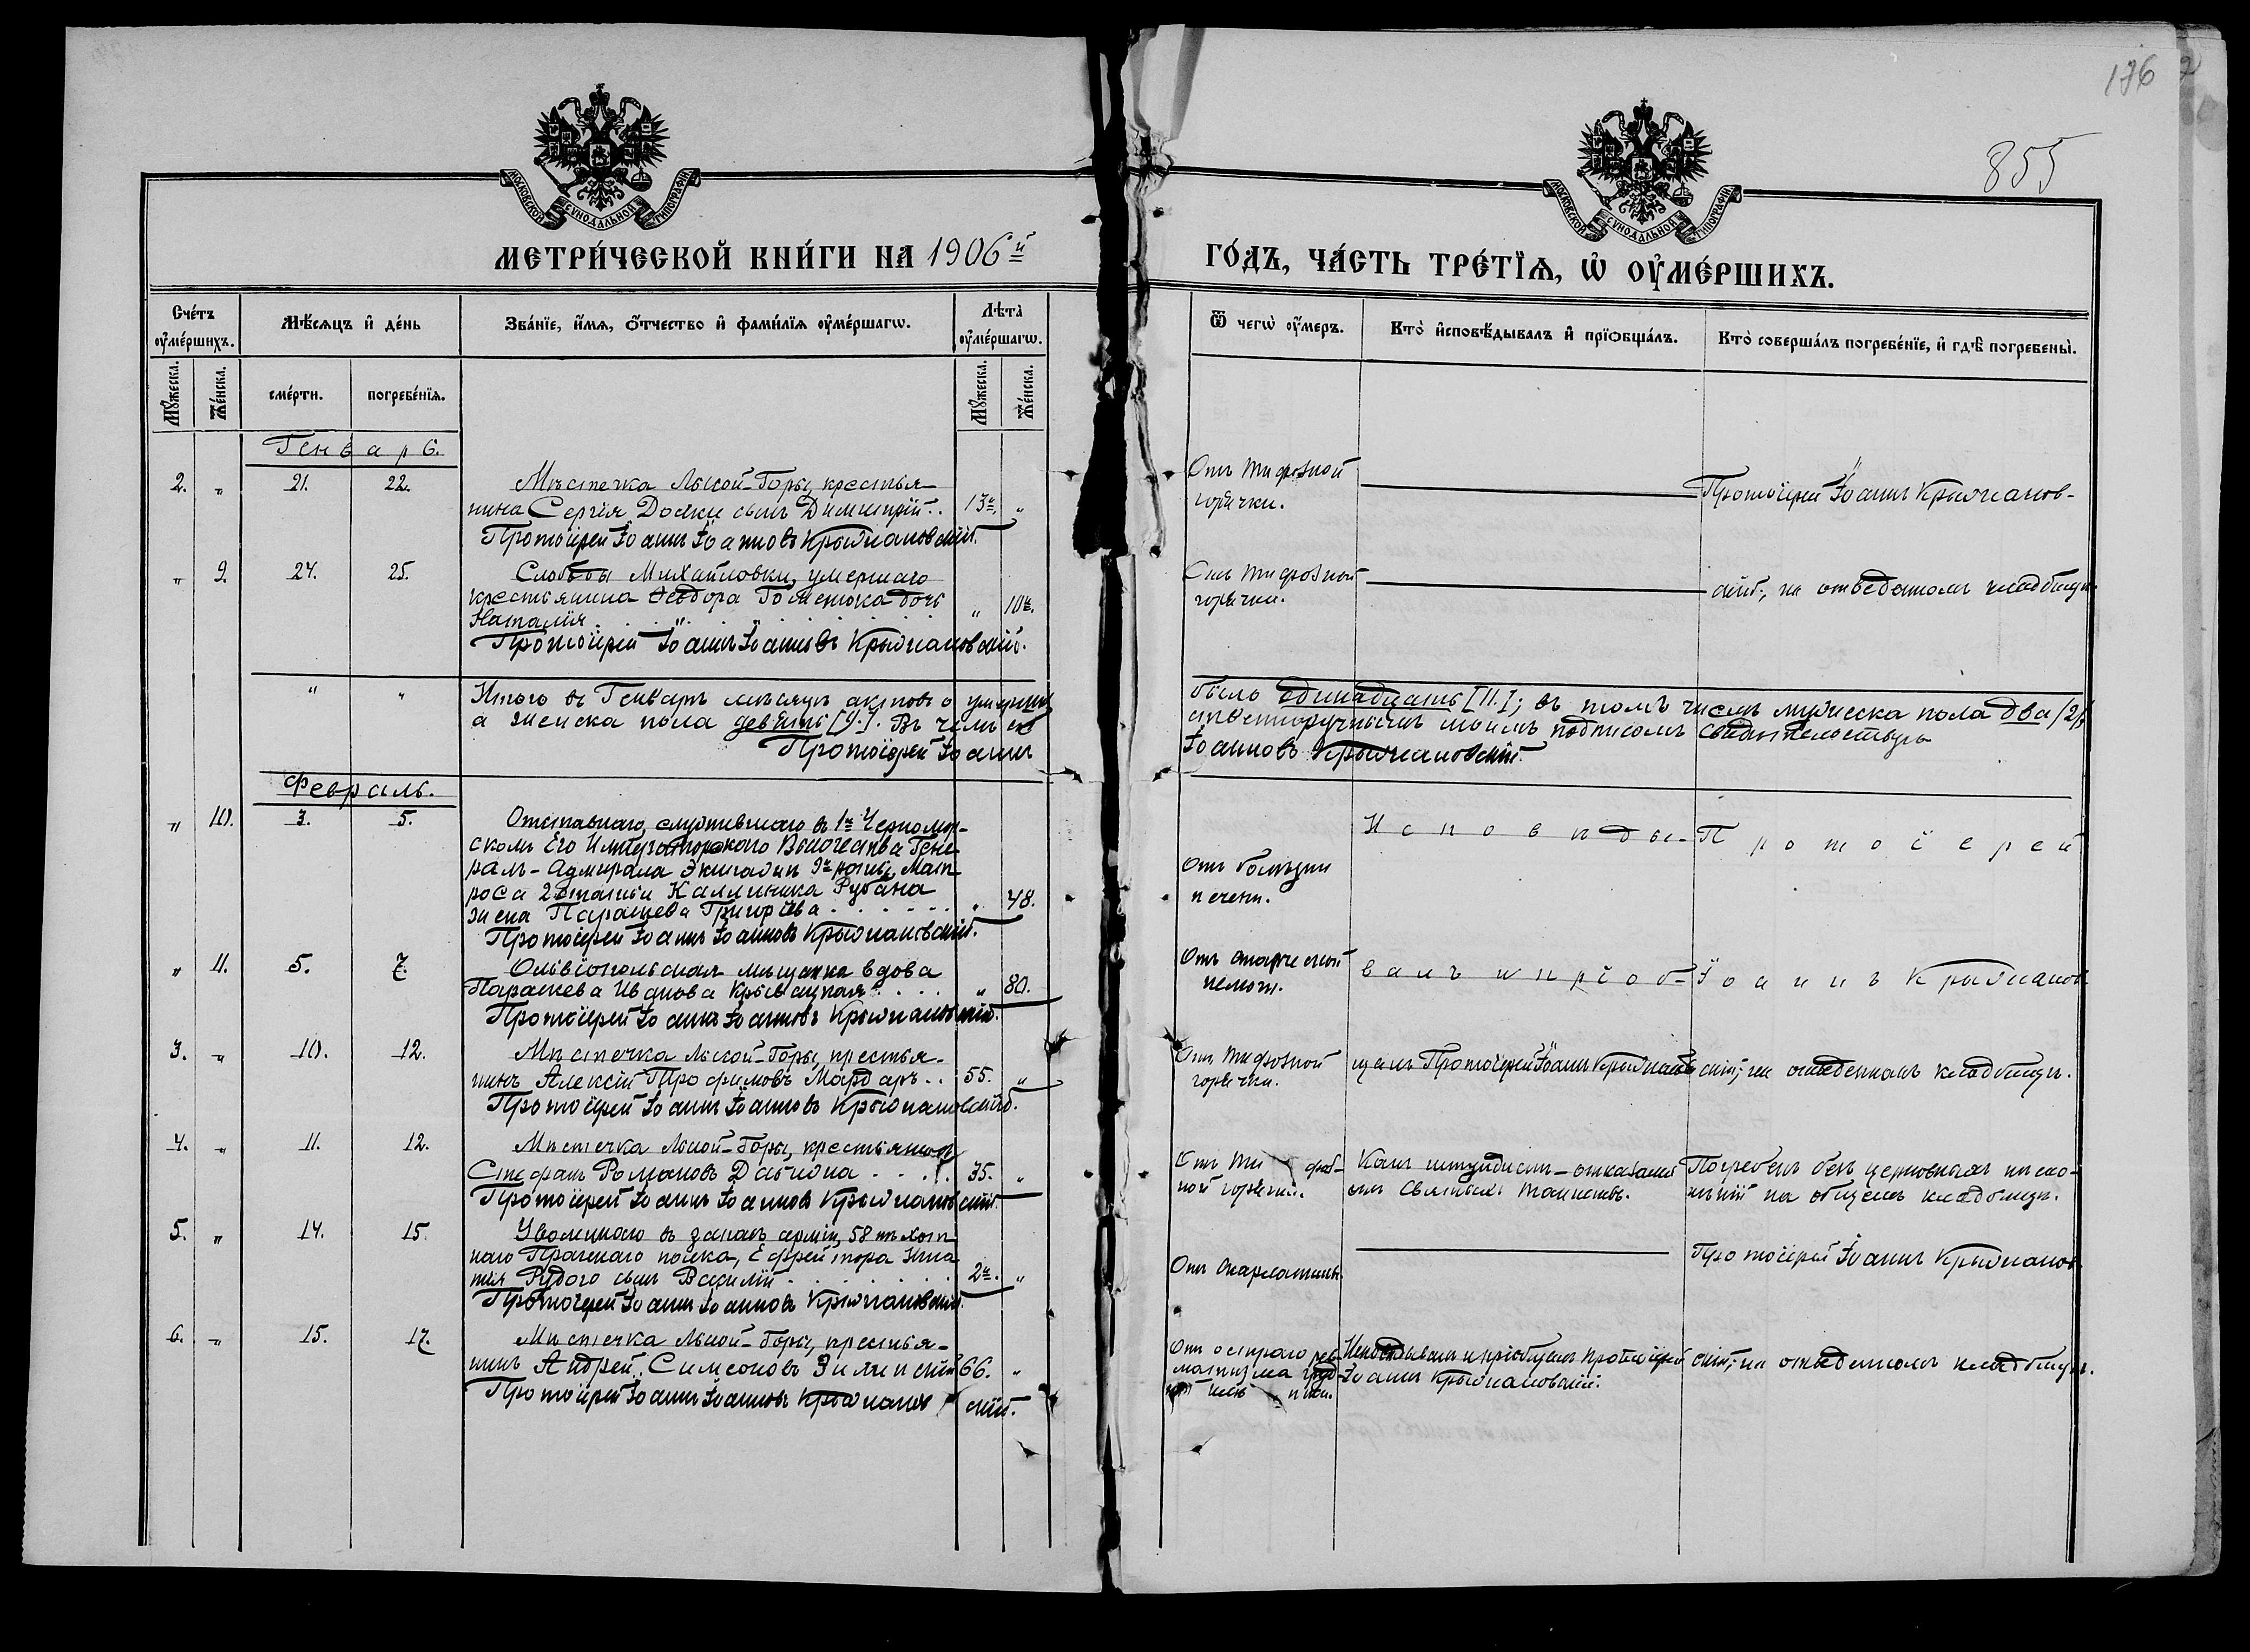 176
855
МОСКОВСКОЙ СѴНОДАЛЬНОЙ ТИПОГРАФІИ
МОСКОВСКОЙ СѴНОДАЛЬНОЙ ТИПОГРАФІИ
МЕТРИ́ЧЕСКОЙ КНИ́ГИ НА 1906й
ГО́ДЪ, ЧА́СТЬ ТРЕ́ТІѦ, Ѡ ОУМЕ́РШИХЪ.
Сче́тъ оуме́ршихъ.
Мꙋжеска.
Же́нска.
Мѣ́сѧцъ и де́нь
сме́рти.
погребе́нїѧ.
Зва́нїе, и́мѧ, о́тчество и фами́лїѧ оуме́ршагѡ.
Лѣта̀ оуме́ршагѡ.
Мꙋжеска.
Же́нска.
Ѿ чегѡ̀ оу́меръ.
Кто̀ и́сповѣ́дывалъ и прїѡбща́лъ.
Кто̀ соверша́лъ погребе́нїе, и гдѣ̀ погребены̀.
Генварь.
2. " 21. 22. Мѣстечка Лысой-Горы, крестья-
нина Сергія Дойки сынъ Димитрій . . "
Протоіерей Іоаннъ Іоанновъ Крыжановскій.
Отъ тифозной
горячки.
Протоіерей Іоаннъ Крыжанов-
" 9. 24. 25. Слободы Михайловки, умершаго
крестьянина Ѳеодора дочь
Наталія . . . "
Протоіерей Іоаннъ Іоанновъ Крыжановскій.
Отъ тифозной
горячки.
скій; на отведенномъ кладбищѣ.
" " Итого въ Генварѣ мѣсяцѣ умершихъ
было единадцать [11.]; въ томъ числѣ мужеска пола два [2],
а женска пола девять [9.]. Въ чемъ
подписомъ свидѣтельствую
Протоіерей Іоаннъ
Іоанновъ Крыжановскій.
Февраль.
" 10. 3. 5. Отставнаго, служившаго въ 1м Черномор-
скомъ Его Императорскаго Высочества Гене-
ралъ-Адмирала Экипажѣ, роты, Мат-
роса 2 статьи Каллиника Рубана
жена Параскева Григорьева . . . . . . " 48.
Протоіерей Іоаннъ Іоанновъ Крыжановскій.
Отъ болѣзни
печени.
Исповѣды-
Протоіерей
" 11. 5. 7. Ольвіопольская мѣщанка вдова
Параскева Иванова . . . . " 80.
Протоіерей Іоаннъ Іоанновъ Крыжановскій.
Отъ старческой
немощи.
валъ и пріоб-
Іоаннъ Крыжанов-
3. " 10. 12. Мѣстечка Лысой-Горы, крестья-
нинъ Алексій Трофимовъ Мардарь . . 55. "
Протоіерей Іоаннъ Іоанновъ Крыжановскій.
Отъ тифозной
горячки.
щалъ Протоіерей Іоаннъ Крыжанов-
скій; на отведенномъ кладбищѣ.
4. " 11. 12. Мѣстечка Лысой-Горы, крестьянинъ
Стефанъ Романовъ . . . . 35. "
Протоіерей Іоаннъ Іоанновъ Крыжановскій.
Отъ тифоз-
ной горячки.
Какъ штундистъ - отказался
отъ Святыхъ Таинствъ.
Погребенъ безъ церковнаго пѣсно-
пѣнія на общемъ кладбищѣ.
5. " 14. 15. Уволеннаго въ запасъ арміи, 58 пѣхот-
наго Пражскаго полка, Ефрейтора Игна-
тія Рудого сынъ Василій . . . . . . "
Протоіерей Іоаннъ Іоанновъ Крыжановскій.
Отъ скарлатины.
Протоіерей Іоаннъ Крыжанов-
6. " 15. 17. Мѣстечка Лысой-Горы, крестья-
нинъ Андрей Симеоновъ Зилинскій 66. "
Протоіерей Іоаннъ Іоанновъ Крыжановскій.
Отъ остраго рев-
матизма
Исповѣдывалъ и пріобщалъ Протоіерей
Іоаннъ Крыжановскій.
скій; на отведенномъ кладбищѣ.